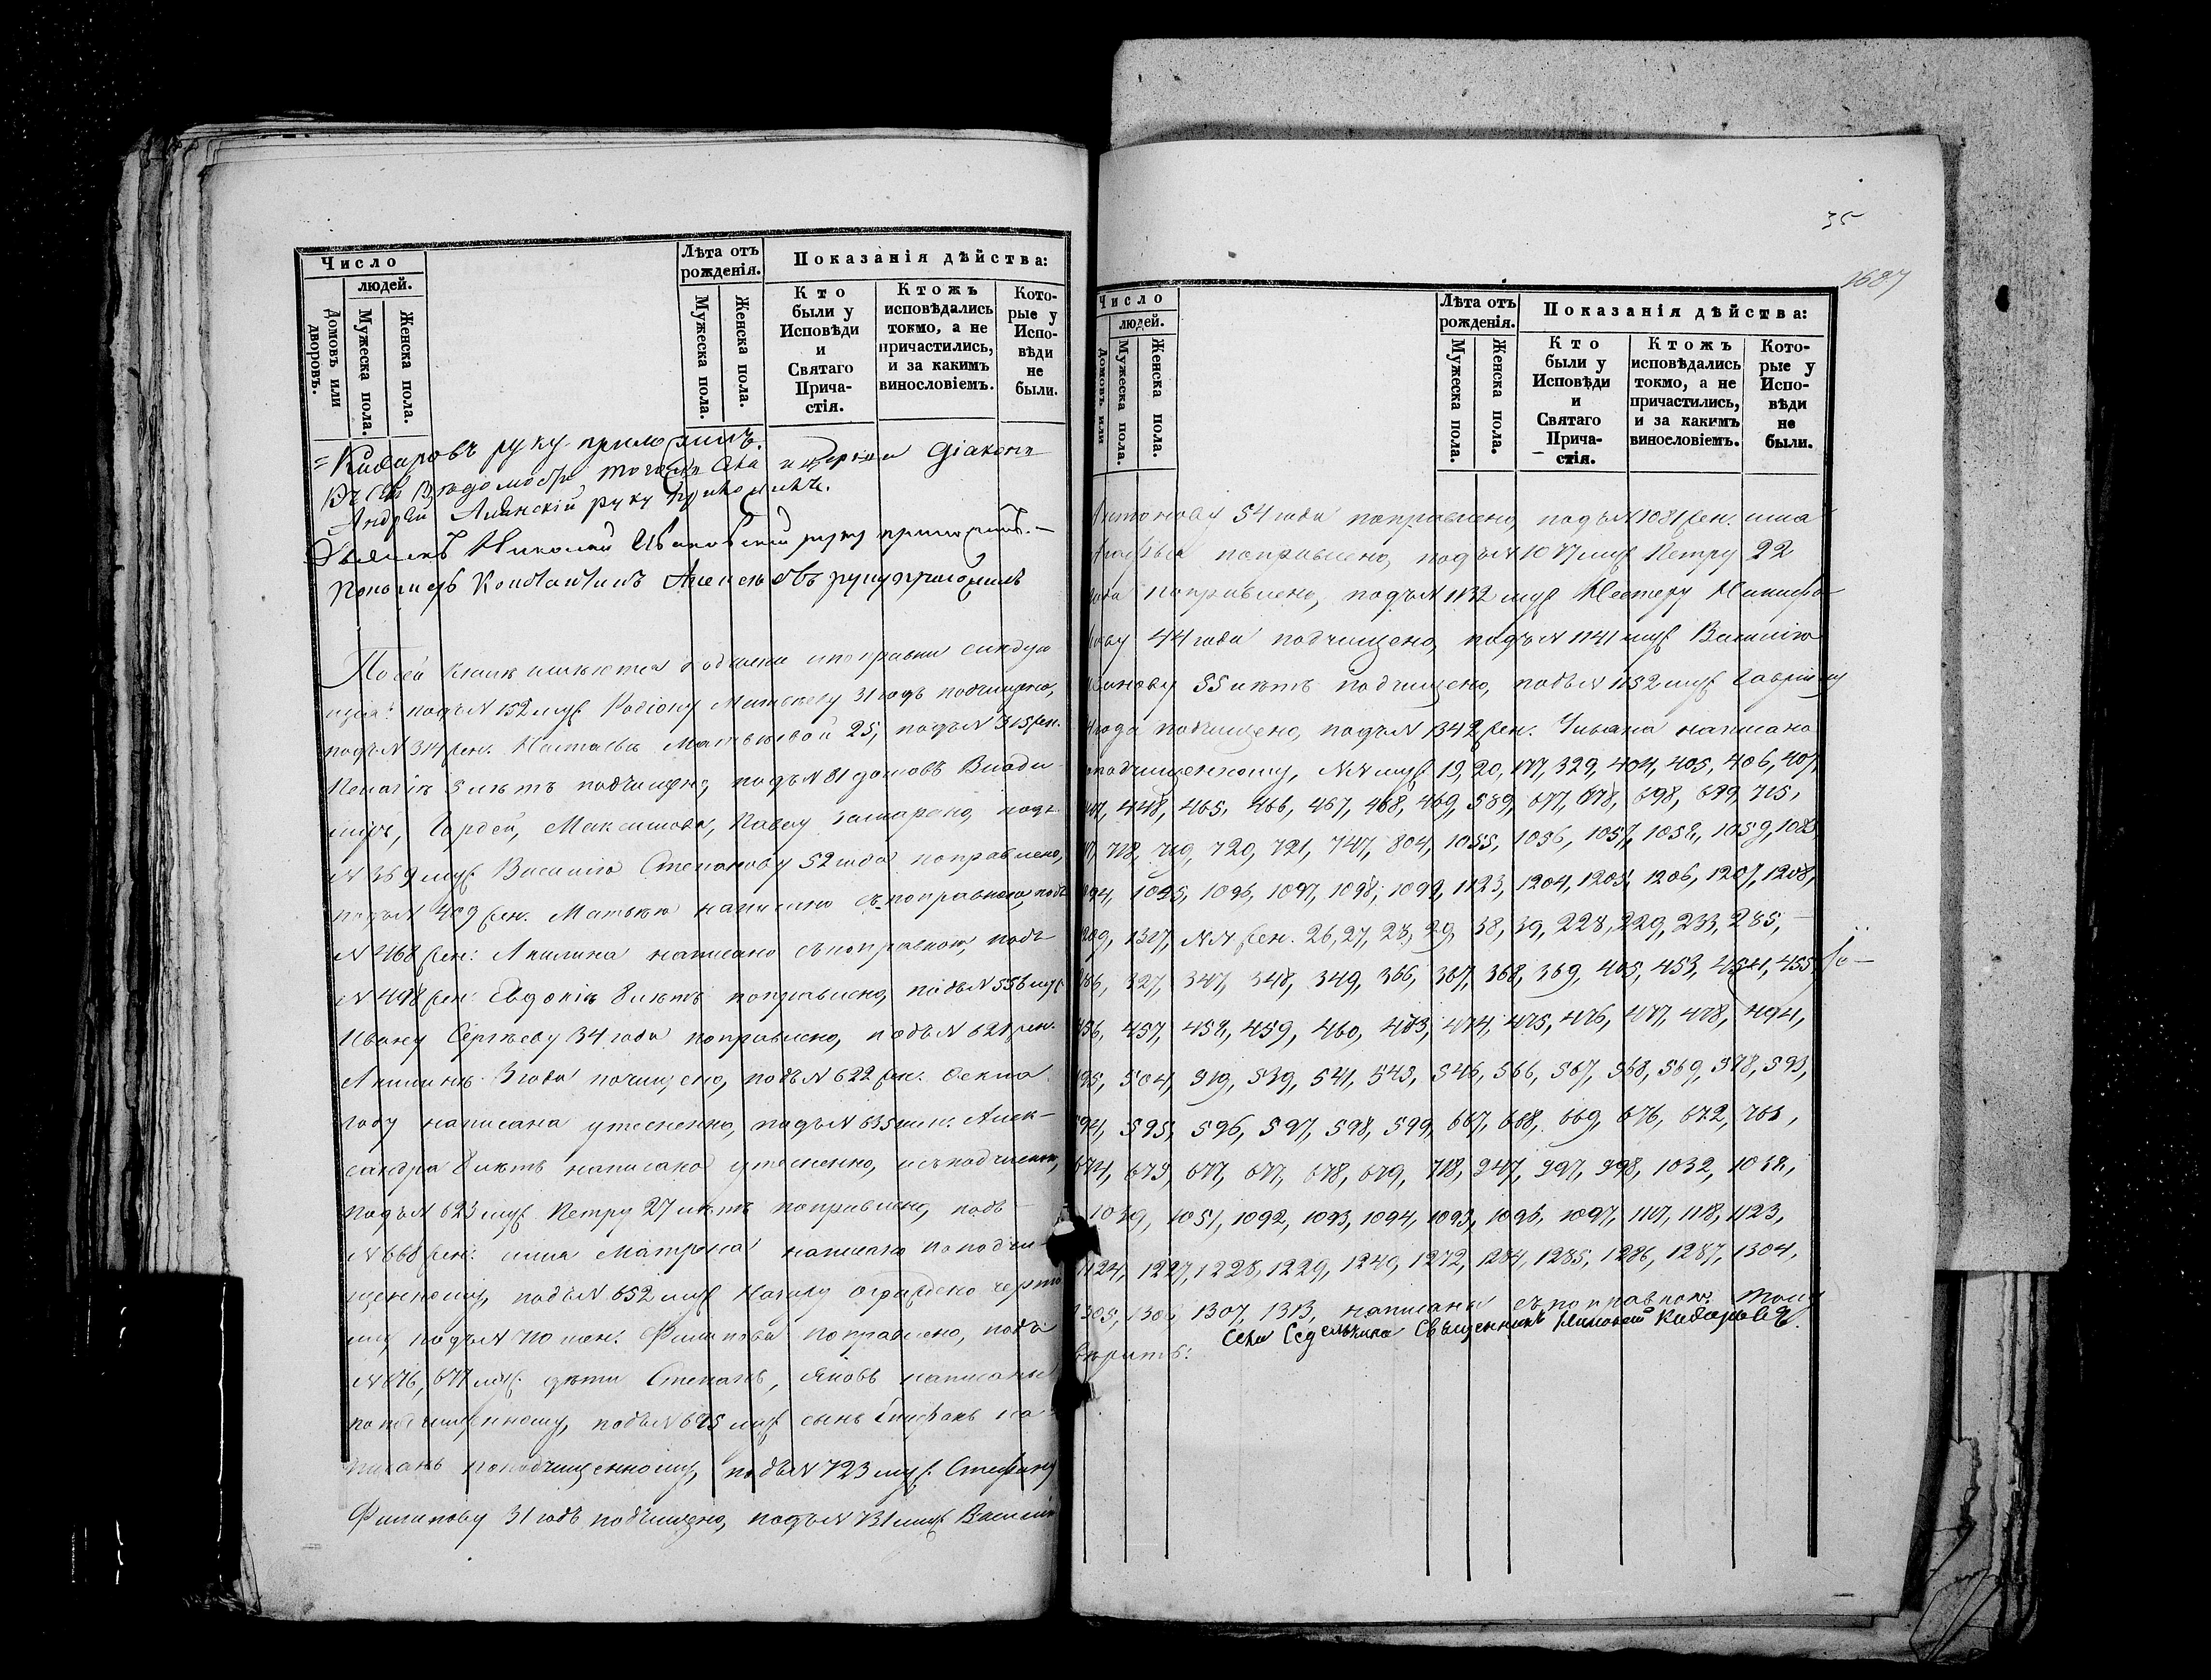 Число
людей.
Домовъ или дворовъ.
Мужеска пола.
Женска пола.
Лѣта отъ рожденія.
Мужеска пола.
Женска пола.
Показанія дѣйства:
Кто были у Исповѣди и Святаго Прича-стія.
Ктожъ исповѣдались токмо, а не причастились, и за какимъ винословіемъ.
Кото-рые у Испо-вѣди не были.
Кидаровъ руку приложилъ.
Къ сей вѣдомости, тогожъ села и церкви Діаконъ
Андрей Аманскій руку приложилъ.
Дьячекъ Николай Ивановскій руку приложилъ.—
Пономарь Константинъ Алексеевъ руку приложилъ
По сей книгѣ имѣются подчистки и поправки слѣдую
щія: подъ № 152 муж. Родіону Матвѣеву 31 годъ подчищено,
подъ № 314 жен. Настасьѣ Матвѣевой 25, подъ № 315 жен.
Пелагіи 3 лѣтъ подчищено, подъ № 81 домовъ Влади-
міръ, Гордей, Максимова, Павлу замарано, подъ
№ 369 муж. Василію Степанову 52 года поправлено,
подъ № 409 жен. Матвѣю написано съ поправкою, подъ
№ 468 жен. Акилина написано съ поправкою, подъ
№ 498 жен. Евдокіи 8 лѣтъ поправлено, подъ № 556 муж
Ивану Сергѣеву 34 года поправлено, подъ № 621 жен.
Акилинѣ 3 года почищено, подъ № 622 жен. Фекла
году написана утесненно, подъ № 635 жен. Алек-
сандра 8 лѣтъ написано утесненно, и съ подчисткою,
подъ № 623 муж. Петру 27 лѣтъ поправлено, подъ
№ 668 жен. имя Матрена написано по подчи-
щенному, подъ № 652 муж
подъ № 710 жен. поправлено, подъ
№ 676, 677 муж. дѣти Степанъ, Яковъ написаны
по подчищенному, подъ № 695 муж сынъ на-
писанъ по подчищенному, подъ № 723 муж. Стефану
Филипову 31 годъ подчищено, подъ № 731 муж Василію
35
1687
Число
людей.
Домовъ или
Мужеска пола.
Женска пола.
Лѣта отъ рожденія.
Мужеска пола.
Женска пола.
Показанія дѣйства:
Кто были у Исповѣди и Святаго Прича-стія.
Ктожъ исповѣдались токмо, а не причастились, и за какимъ винословіемъ.
Кото-рые у Испо-вѣди не были.
Антонову 54 года поправлено, подъ № 1081 жен. имя
поправлено, подъ № 1077 муж Петру 22
года поправлено, подъ № 1132 муж Нестеру Никифо-
рову 44 года подчищено, подъ № 1141 муж Василію
55 лѣтъ подчищено, подъ № 1152 муж Гаврилу
года подчищено, подъ № 1342 жен. Ульяна написано
по подчищенному, №№ муж 19, 20, 177, 329, 404, 405, 406, 407,
448, 465, 466, 467, 468, 469, 589, 677, 678, 698, 699, 715,
718, 719, 720, 721, 747, 804, 1055, 1056, 1057, 1058, 1059, 1083
1095, 1096, 1097, 1098, 1099, 1123, 1204, 1205, 1206, 1207, 1208,
1209, 1307, №№ жен. 26, 27, 28, 29, 38, 39, 228, 229, 233, 285,
286, 327, 347, 348, 349, 366, 367, 368, 369, 405, 453, 454, 455,
456, 457, 458, 459, 460, 473, 474, 475, 476, 477, 478, 494,
495, 504, 519, 539, 541, 543, 546, 566, 567, 568, 569, 578, 593,
594, 595, 596, 597, 598, 599, 667, 668, 669, 676, 672,
674, 675, 677, 677, 678, 679, 718, 947, 997, 998, 1032, 1038,
1039, 1051, 1092, 1093, 1094, 1095, 1096, 1097, 1117, 1118, 1123,
1124, 1227, 1228, 1229, 1249, 1272, 1284, 1285, 1286, 1287, 1304,
1305, 1306, 1307, 1313, написаны съ поправкою. тому
вѣрить: Села Седельника Священникъ Николай Кидаровъ.